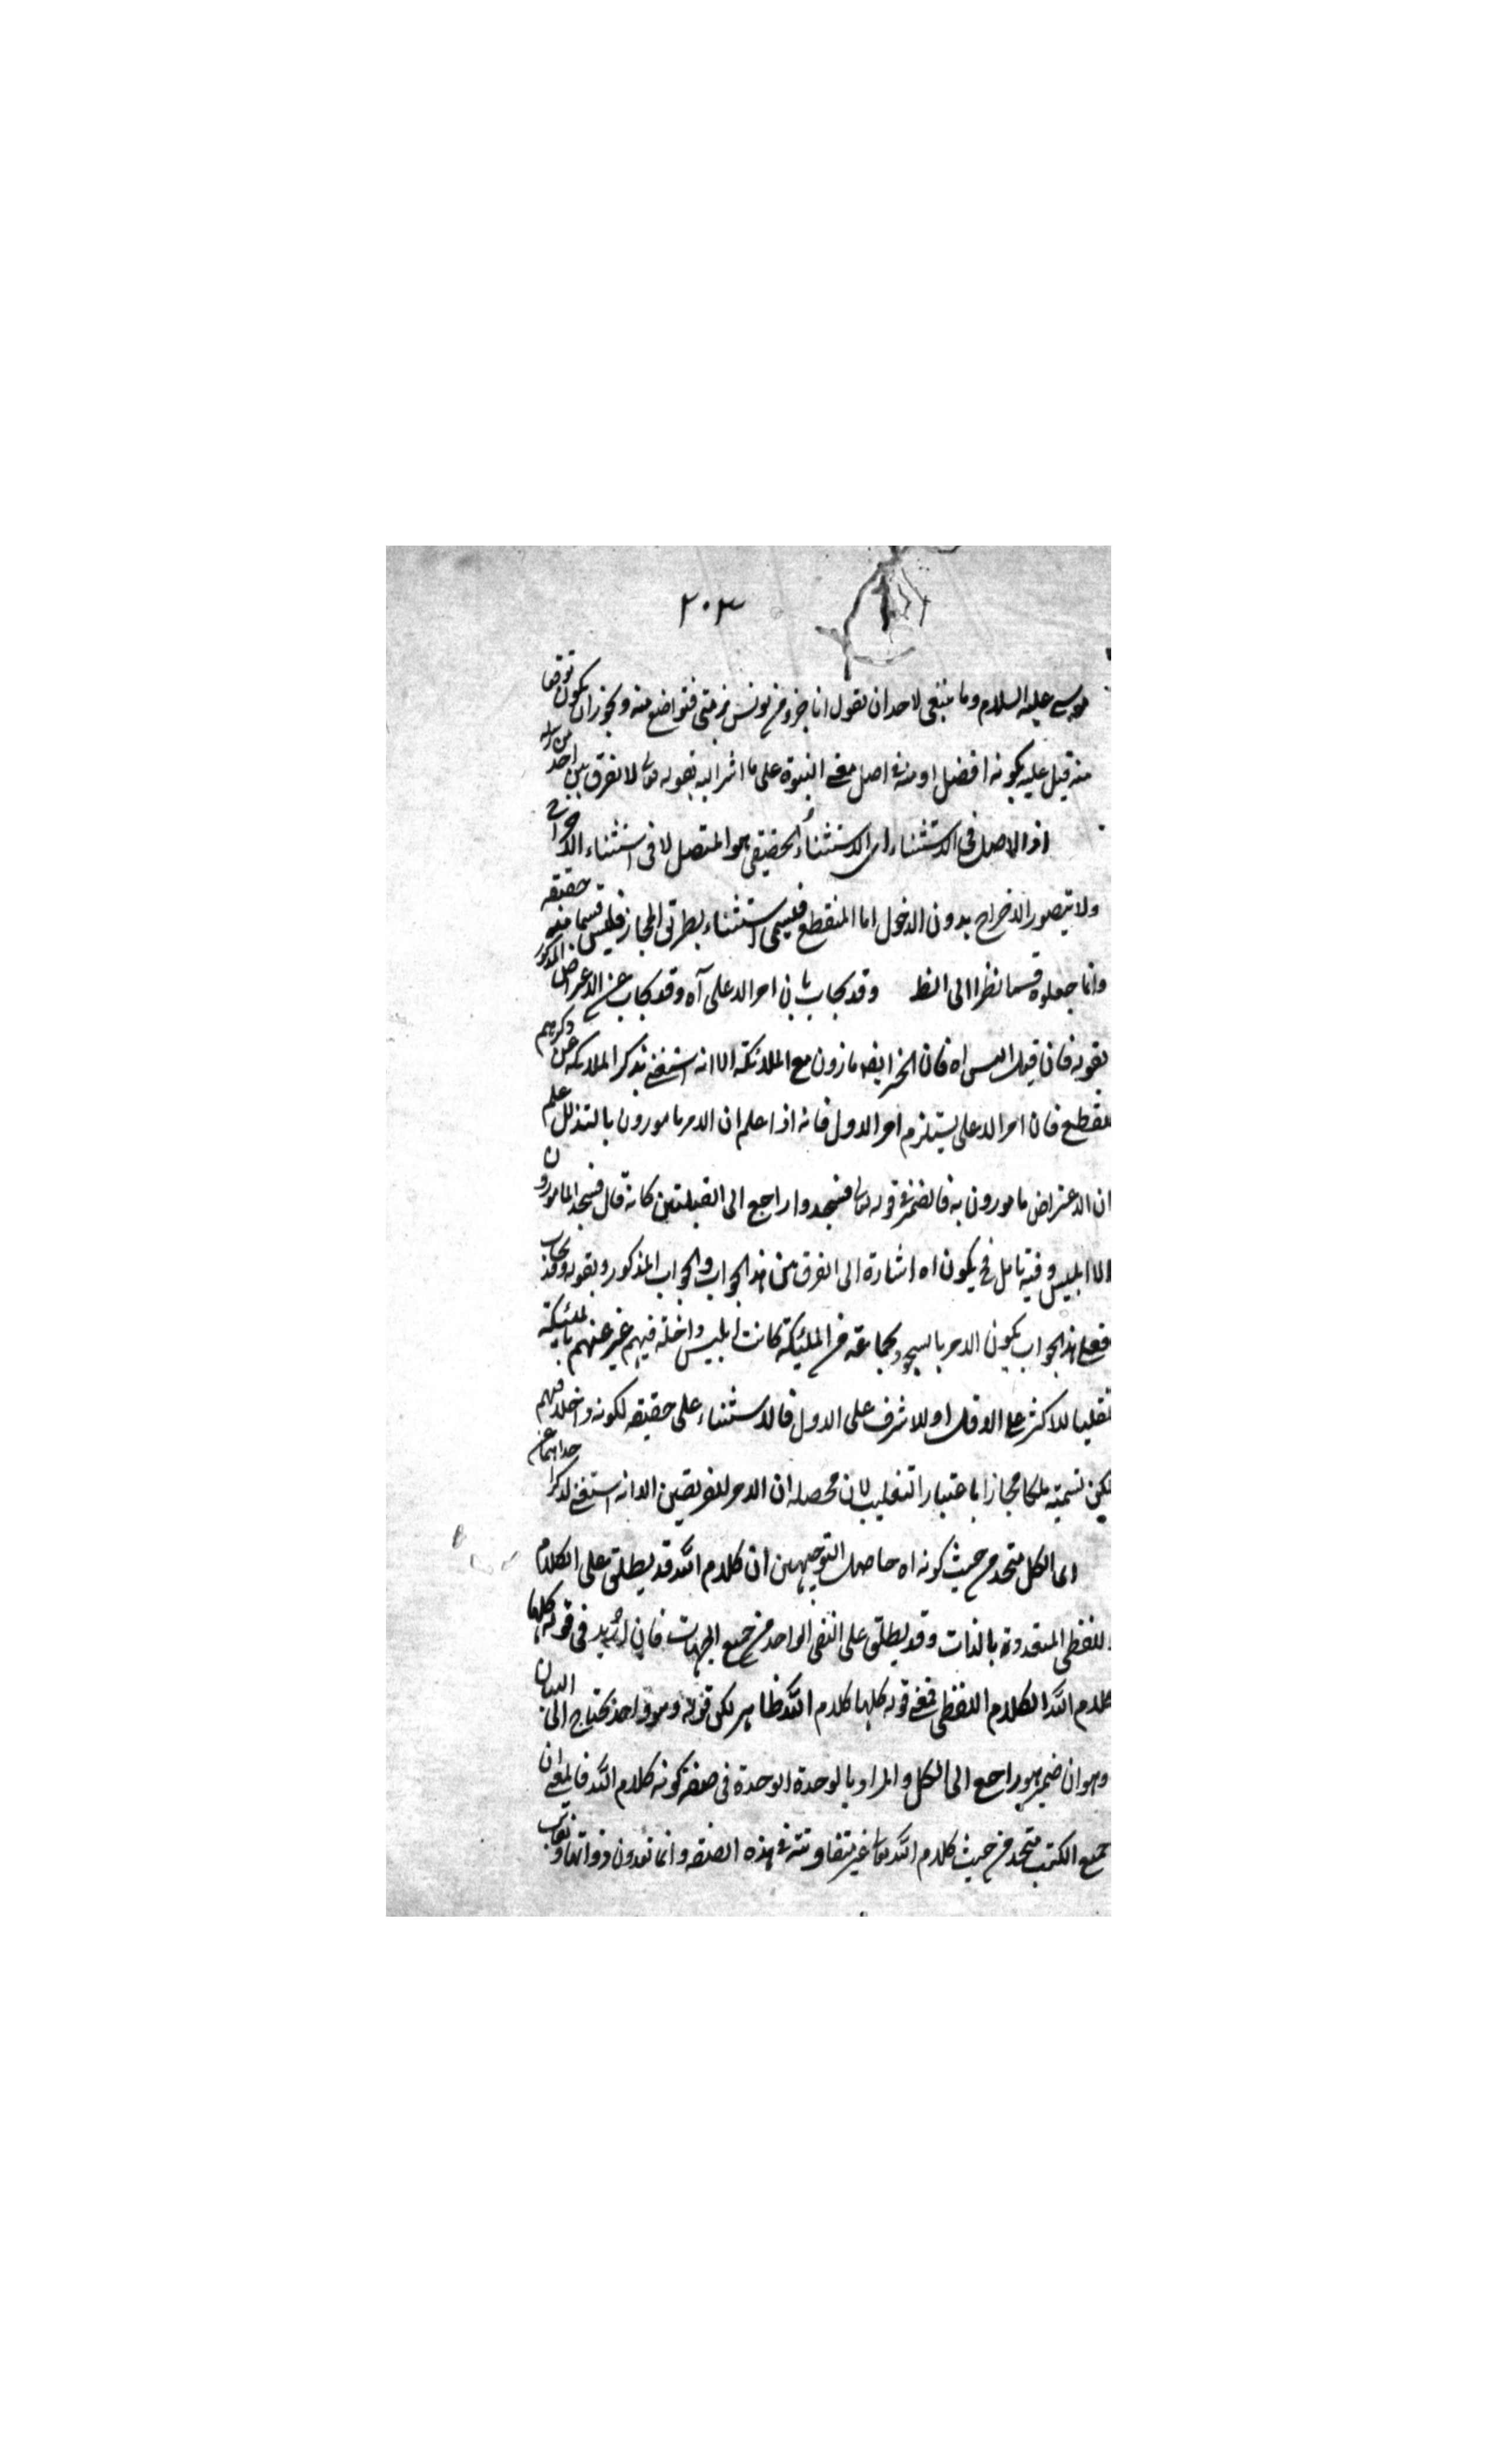 ٢٠٣
موسى عليه السلام وما ينبغي لاحد ان يقول انا خير من يونس بن متى فتواضع منه ويجوز ان يكون توقفا
منه قبل علمه بكونه افضل او منه في اصل معنى النبوة على ما اشر اليه بقوله تعالى لا نفرق بين احد من رسله
اذ الاصل في الاستثناء اى الاستثناء الحقيقي هو المتصل لا في استثناء الاخراج
ولا يتصور الاخراج بدون الدخول اما المنقطع فليسمى استثناء بطريق المجاز فليس قسما منه حقيقة
وانما جعلوه قسما نظرا الى الظ وقد يجاب بان امر الاعلى آه وقد يجاب عن الاعتراض المذكور
بقوله فان قيل اليس اه فان الجن ايضا مأزون مع الملائكة الا انه استغنى بذكر الملائكة عن ذكرهم
للقطع فان امر الاعلى يستلزم امر الاول فانه اذا علم ان الامر مامورون بالتذلل علم
ان الاعتراض مامورون به فالضمير في قوله تعالى فسجدوا راجع الى القبلتين كانه قال فسجد المامورون
الا ابليس وفيه تامل في يكون اه اشارة الى الفرق بين هذا الجواب والجواب المذكور بقوله وقد يجاب
فعلى هذا الجواب يكون الامر بالسجود لجماعة من الملئكة كانت ابليس داخلة فيهم غير عنهم بالملئكة
تغليبا للاكثر على الاقل او للاشرف على الدول فالاستثناء على حقيقة لكونه داخلا فيهم
لكن تسميته ملكا مجازا باعتبار التغليب لان محصله ان الامر للفريقين الا انه استغنى لذكر احدهما عن
اما الكل متحد من حيث كونه اه حاصل التوجيهين ان كلام الله قد يطلق على الكلام
اللفظى المتعددة بالذات وقد يطلق على النفى الواحد من جميع الجهات فان اريد في قوله كلها
كلام الله الكلام اللفظى فمعنى قوله كلها كلام الله ظاهر لكن قوله وهو واحد يحتاج الى البيان
وهو ان ضمير هو راجع الى الكل والمراد بالوحدة الوحدة في صفة كونه كلام الله فالمعنى ان
جميع الكتب متحد من حيث كلام الله تعالى غير متفاوتة في هذه الصفة وانما تعدون ذواتها